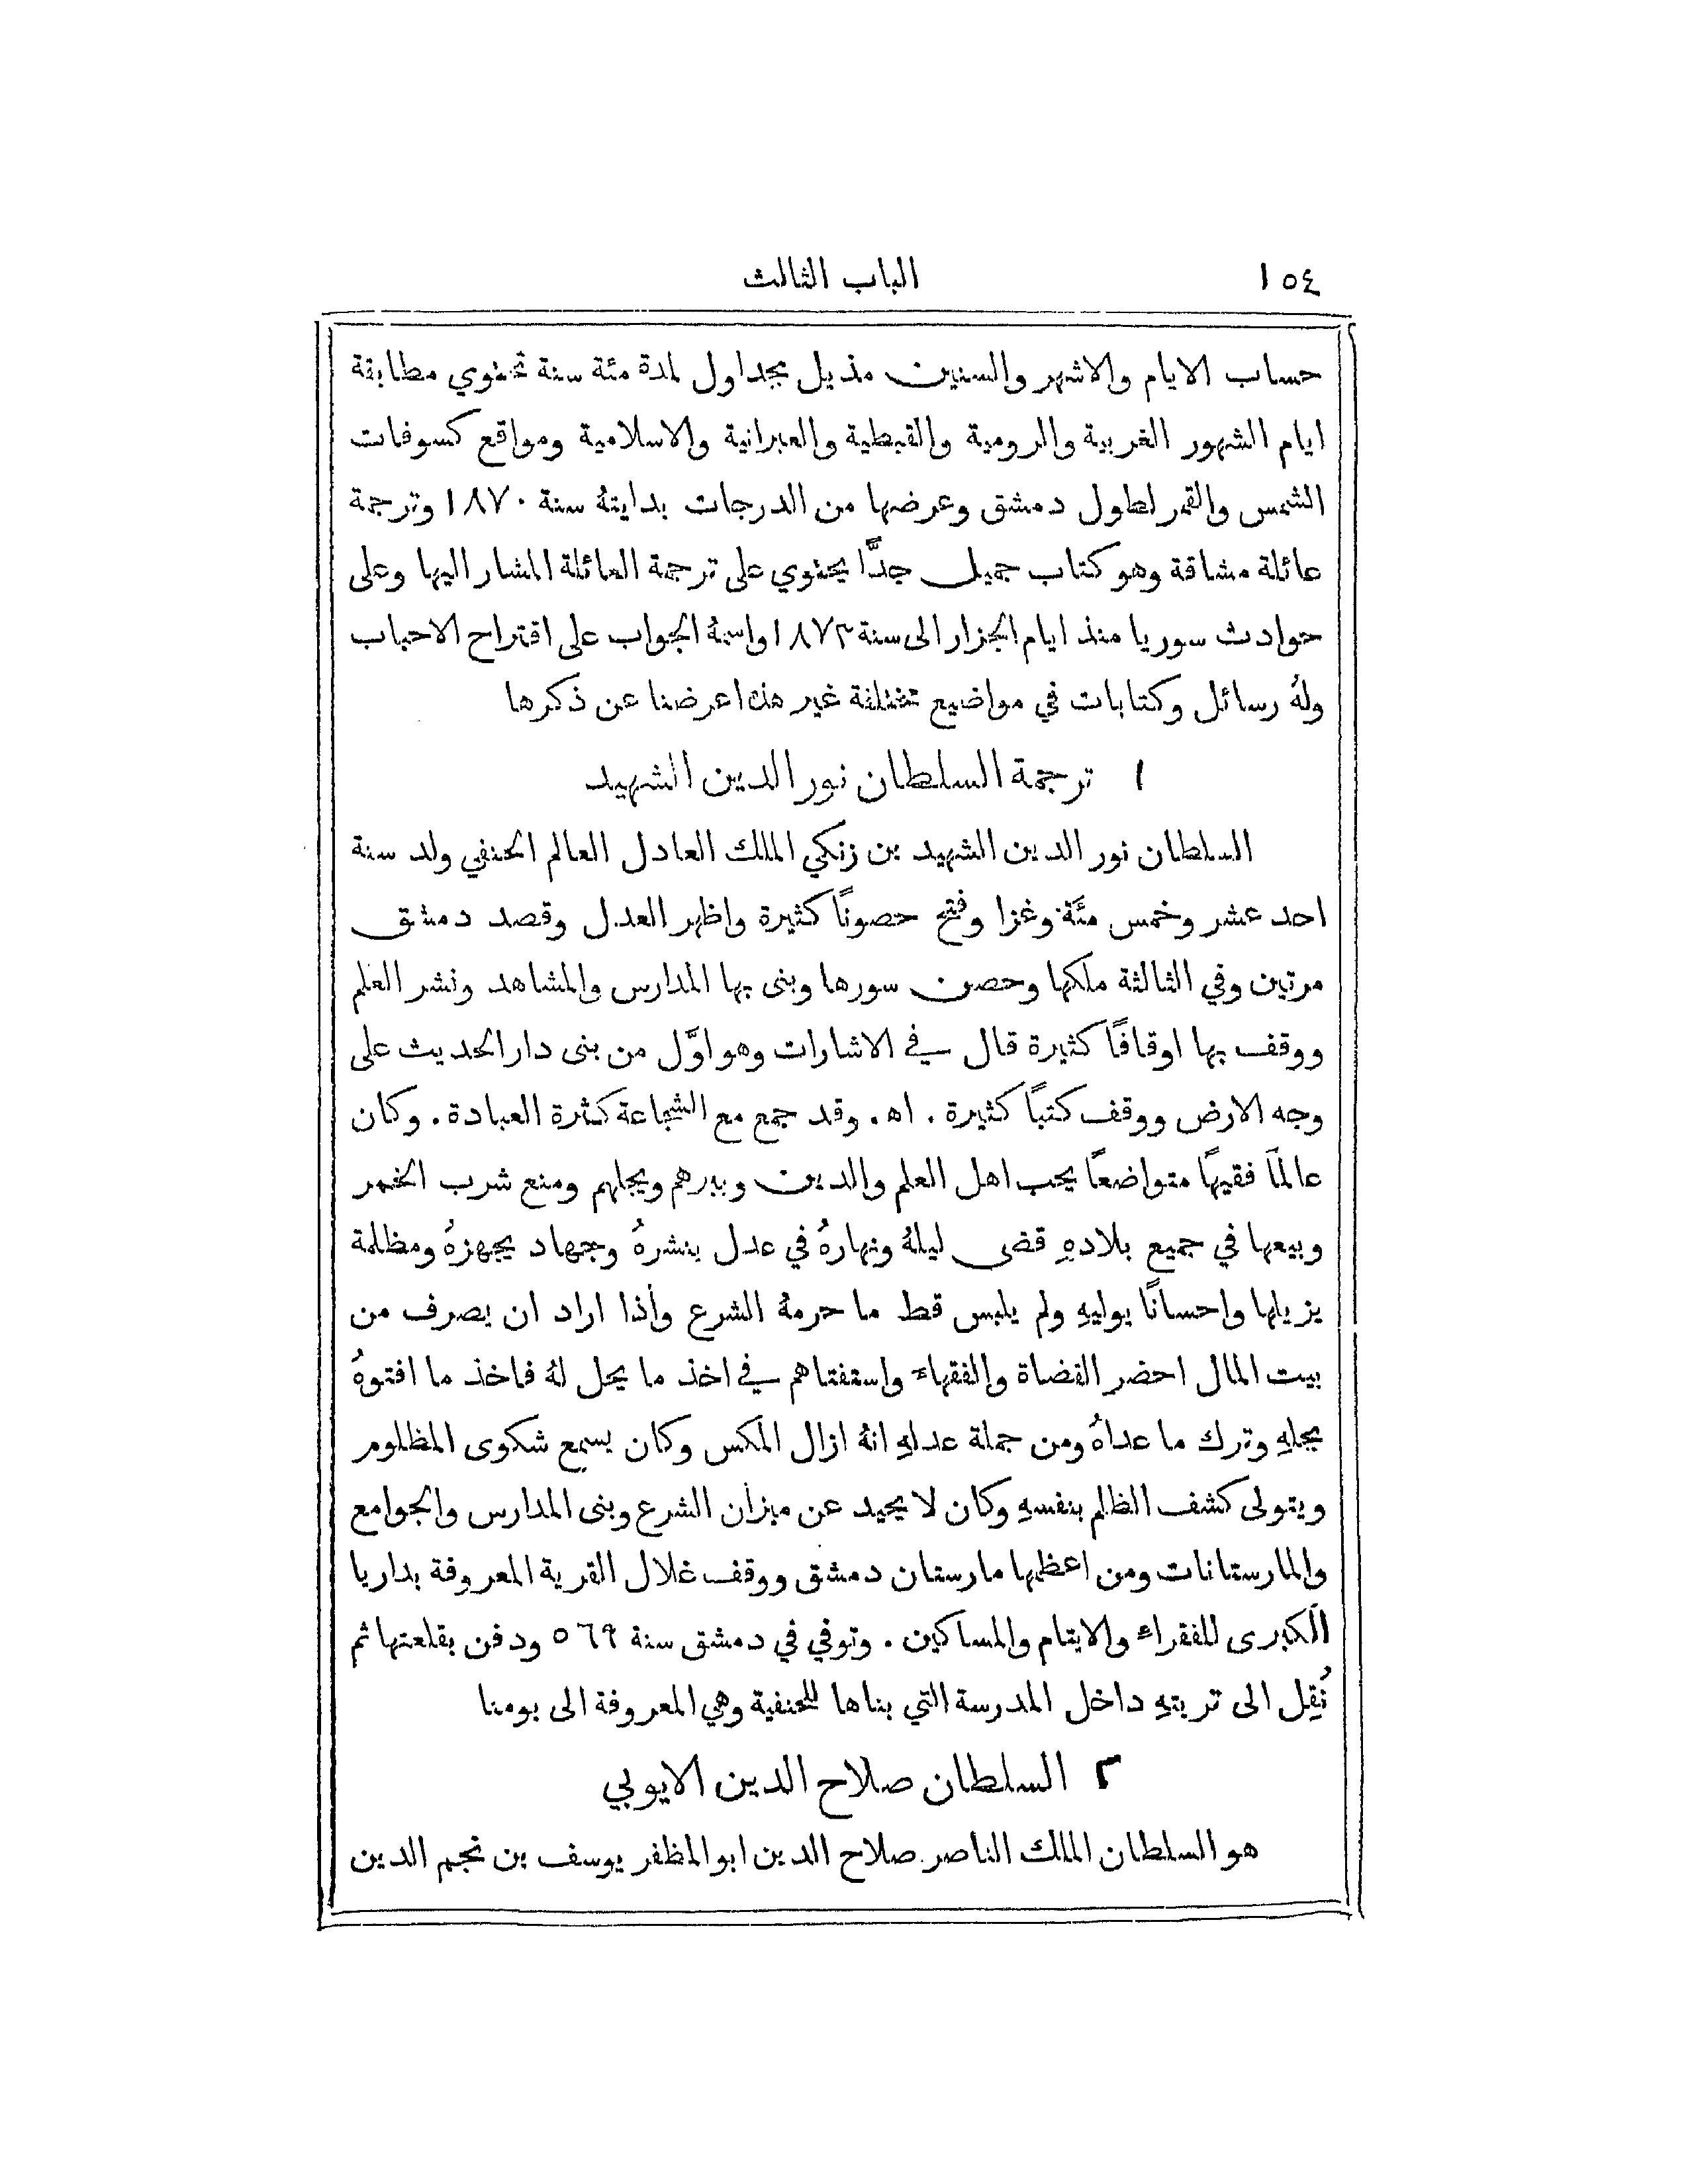 ١٥٤ الباب الثالث
حساب الايام والاشهر والسنين مذيل بجداول لمدة مئة سنة تحتوي مطابقة
ايام الشهور الغربية والرومية والقبطية والعبرانية والاسلامية ومواقع كسوفات
الشمس والقمر لطول دمشق وعرضها من الدرجات بدايتهُ سنة ١٨٧٠ وترجمة
عائلة مشاقة وهو كتاب جميل جدًّا يحتوي على ترجمة العائلة المشار اليها وعلى
حوادث سوريا منذ ايام الجزار الى سنة ١٨٧٣ واسمهُ الجواب على اقتراح الاحباب
ولهُ رسائل وكتابات في مواضيع مختلفة غير هذه اعرضنا عن ذكرها
١ ترجمة السلطان نور الدين الشهيد
السلطان نور الدين الشهيد بن زنكي الملك العادل العالم الحنفي ولد سنة
احد عشر وخمس مئة وغزا وفتح حصونًا كثيرة واظهر العدل وقصد دمشق
مرتين وفي الثالثة ملكها وحصن سورها وبنى بها المدارس والمشاهد ونشر العلم
ووقف بها اوقافًا كثيرة قال في الاشارات وهو اوَّل من بنى دار الحديث على
وجه الارض ووقف كتبًا كثيرة . اه . وقد جمع مع الشجاعة كثرة العبادة . وكان
عالمًا فقيهًا متواضعًا يحب اهل العلم والدين ويبرهم ويجلهم ومنع شرب الخمر
وبيعها في جميع بلادهِ قضى ليلهُ ونهارهُ في عدل ينشرهُ وجهاد يجهزهُ ومظلمة
يزيلها واحسانًا يوليهِ ولم يلبس قط ما حرمهُ الشرع وأذا اراد ان يصرف من
بيت المال احضر القضاة والفقهاء واستفتاهم في اخذ ما يحل لهُ فاخذ ما افتوهُ
بحلهِ وترك ما عداهُ ومن جملة عدلهِ انهُ ازال المكس وكان يسمع شكوى المظلوم
ويتولى كشف الظالم بنفسهِ وكان لا يحيد عن ميزان الشرع وبنى المدارس والجوامع
والمارستانات ومن اعظمها مارستان دمشق ووقف غلال القرية المعروفة بداريا
الكبرى للفقراء والايتام والمساكين . وتوفي في دمشق سنة ٥٦٩ ودفن بقلعتها ثم
نُقِل الى تربتهِ داخل المدرسة التي بناها للحنفية وهي المعروفة الى يومنا
٢ السلطان صلاح الدين الايوبي
هو السلطان الملك الناصر صلاح الدين ابو المظفر يوسف بن نجم الدين